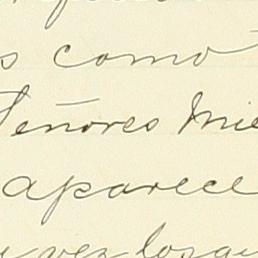 como
Señores Mie
aparece
vez los